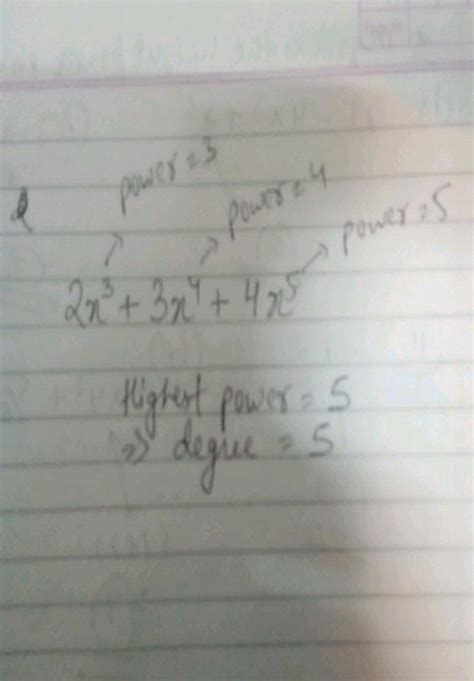 power = 3
power = 4
power = 5
2x³ + 3x⁴ + 4x⁵
Highest power = 5
⇒ degree = 5